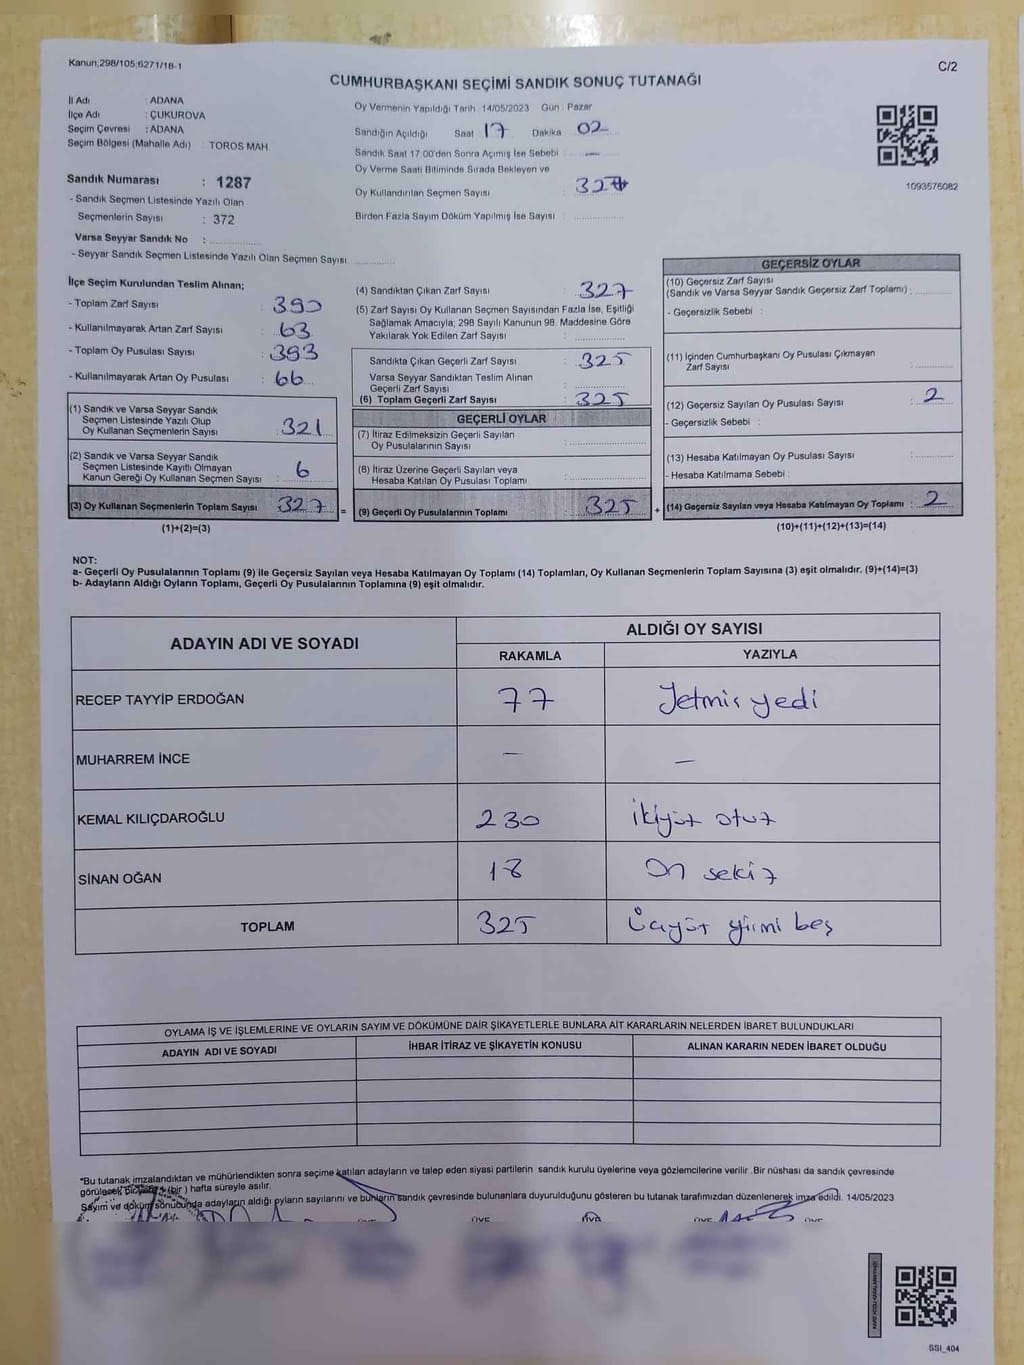 Kanun;298/105;6271/18-1
C/2
CUMHURBAŞKANI SEÇİMİ SANDIK SONUÇ TUTANAĞI
İl Adı : ADANA
İlçe Adı : ÇUKUROVA
Seçim Çevresi : ADANA
Seçim Bölgesi (Mahalle Adı) TOROS MAH
Oy Vermenin Yapıldığı Tarih 14/05/2023 Gün : Pazar
Sandığın Açıldığı Saat 17 Dakika 02
Sandık Saat 17:00'den Sonra Açımış İse Sebebi : —
Oy Verme Saati Bitiminde Sırada Bekleyen ve
Oy Kullandırılan Seçmen Sayısı : 327
Birden Fazla Sayım Döküm Yapılmış İse Sayısı :
1093576082
Sandık Numarası : 1287
- Sandık Seçmen Listesinde Yazılı Olan
Seçmenlerin Sayısı : 372
Varsa Seyyar Sandık No :
- Seyyar Sandık Seçmen Listesinde Yazılı Olan Seçmen Sayısı
İlçe Seçim Kurulundan Teslim Alınan;
- Toplam Zarf Sayısı : 390
- Kullanılmayarak Artan Zarf Sayısı : 63
- Toplam Oy Pusulası Sayısı : 393
- Kullanılmayarak Artan Oy Pusulası : 66
(1) Sandık ve Varsa Seyyar Sandık
Seçmen Listesinde Yazılı Olup
Oy Kullanan Seçmenlerin Sayısı : 321
(2) Sandık ve Varsa Seyyar Sandık
Seçmen Listesinde Kayıtlı Olmayan
Kanun Gereği Oy Kullanan Seçmen Sayısı : 6
(3) Oy Kullanan Seçmenlerin Toplam Sayısı : 327 =
(1)+(2)=(3)
(4) Sandıktan Çıkan Zarf Sayısı : 327
(5) Zarf Sayısı Oy Kullanan Seçmen Sayısından Fazla İse, Eşitliği
Sağlamak Amacıyla; 298 Sayılı Kanunun 98. Maddesine Göre
Yakılarak Yok Edilen Zarf Sayısı :
Sandıkta Çıkan Geçerli Zarf Sayısı : 325
Varsa Seyyar Sandıktan Teslim Alınan
Geçerli Zarf Sayısı :
(6) Toplam Geçerli Zarf Sayısı : 325
GEÇERLİ OYLAR
(7) İtiraz Edilmeksizin Geçerli Sayılan
Oy Pusulalarının Sayısı :
(8) İtiraz Üzerine Geçerli Sayılan veya
Hesaba Katılan Oy Pusulası Toplamı :
(9) Geçerli Oy Pusulalarının Toplamı : 325 +
GEÇERSİZ OYLAR
(10) Geçersiz Zarf Sayısı
(Sandık ve Varsa Seyyar Sandık Geçersiz Zarf Toplamı) :
- Geçersizlik Sebebi :
(11) İçinden Cumhurbaşkanı Oy Pusulası Çıkmayan
Zarf Sayısı :
(12) Geçersiz Sayılan Oy Pusulası Sayısı : 2
- Geçersizlik Sebebi :
(13) Hesaba Katılmayan Oy Pusulası Sayısı :
- Hesaba Katılmama Sebebi :
(14) Geçersiz Sayılan veya Hesaba Katılmayan Oy Toplamı : 2
(10)+(11)+(12)+(13)=(14)
NOT:
a- Geçerli Oy Pusulalarının Toplamı (9) ile Geçersiz Sayılan veya Hesaba Katılmayan Oy Toplamı (14) Toplamları, Oy Kullanan Seçmenlerin Toplam Sayısına (3) eşit olmalıdır. (9)+(14)=(3)
b- Adayların Aldığı Oyların Toplamı, Geçerli Oy Pusulalarının Toplamına (9) eşit olmalıdır.
ADAYIN ADI VE SOYADI
ALDIĞI OY SAYISI
RAKAMLA YAZIYLA
RECEP TAYYİP ERDOĞAN 77 Yetmiş yedi
MUHARREM İNCE — —
KEMAL KILIÇDAROĞLU 230 ikiyüz otuz
SİNAN OĞAN 18 On sekiz
TOPLAM 325 Üçyüz yirmi beş
OYLAMA İŞ VE İŞLEMLERİNE VE OYLARIN SAYIM VE DÖKÜMÜNE DAİR ŞİKAYETLERLE BUNLARA AİT KARARLARIN NELERDEN İBARET BULUNDUKLARI
ADAYIN ADI VE SOYADI İHBAR İTİRAZ VE ŞİKAYETİN KONUSU ALINAN KARARIN NEDEN İBARET OLDUĞU
*Bu tutanak imzalandıktan ve mühürlendikten sonra seçime katılan adayların ve talep eden siyasi partilerin sandık kurulu üyelerine veya gözlemcilerine verilir .Bir nüshası da sandık çevresinde
görülecek bir yere (bir ) hafta süreyle asılır.
Sayım ve döküm sonucunda adayların aldığı oyların sayılarını ve bunların sandık çevresinde bulunanlara duyurulduğunu gösteren bu tutanak tarafımızdan düzenlenerek imza edildi. 14/05/2023
ÜYE ÜYE ÜYE ÜYE
SSI_404